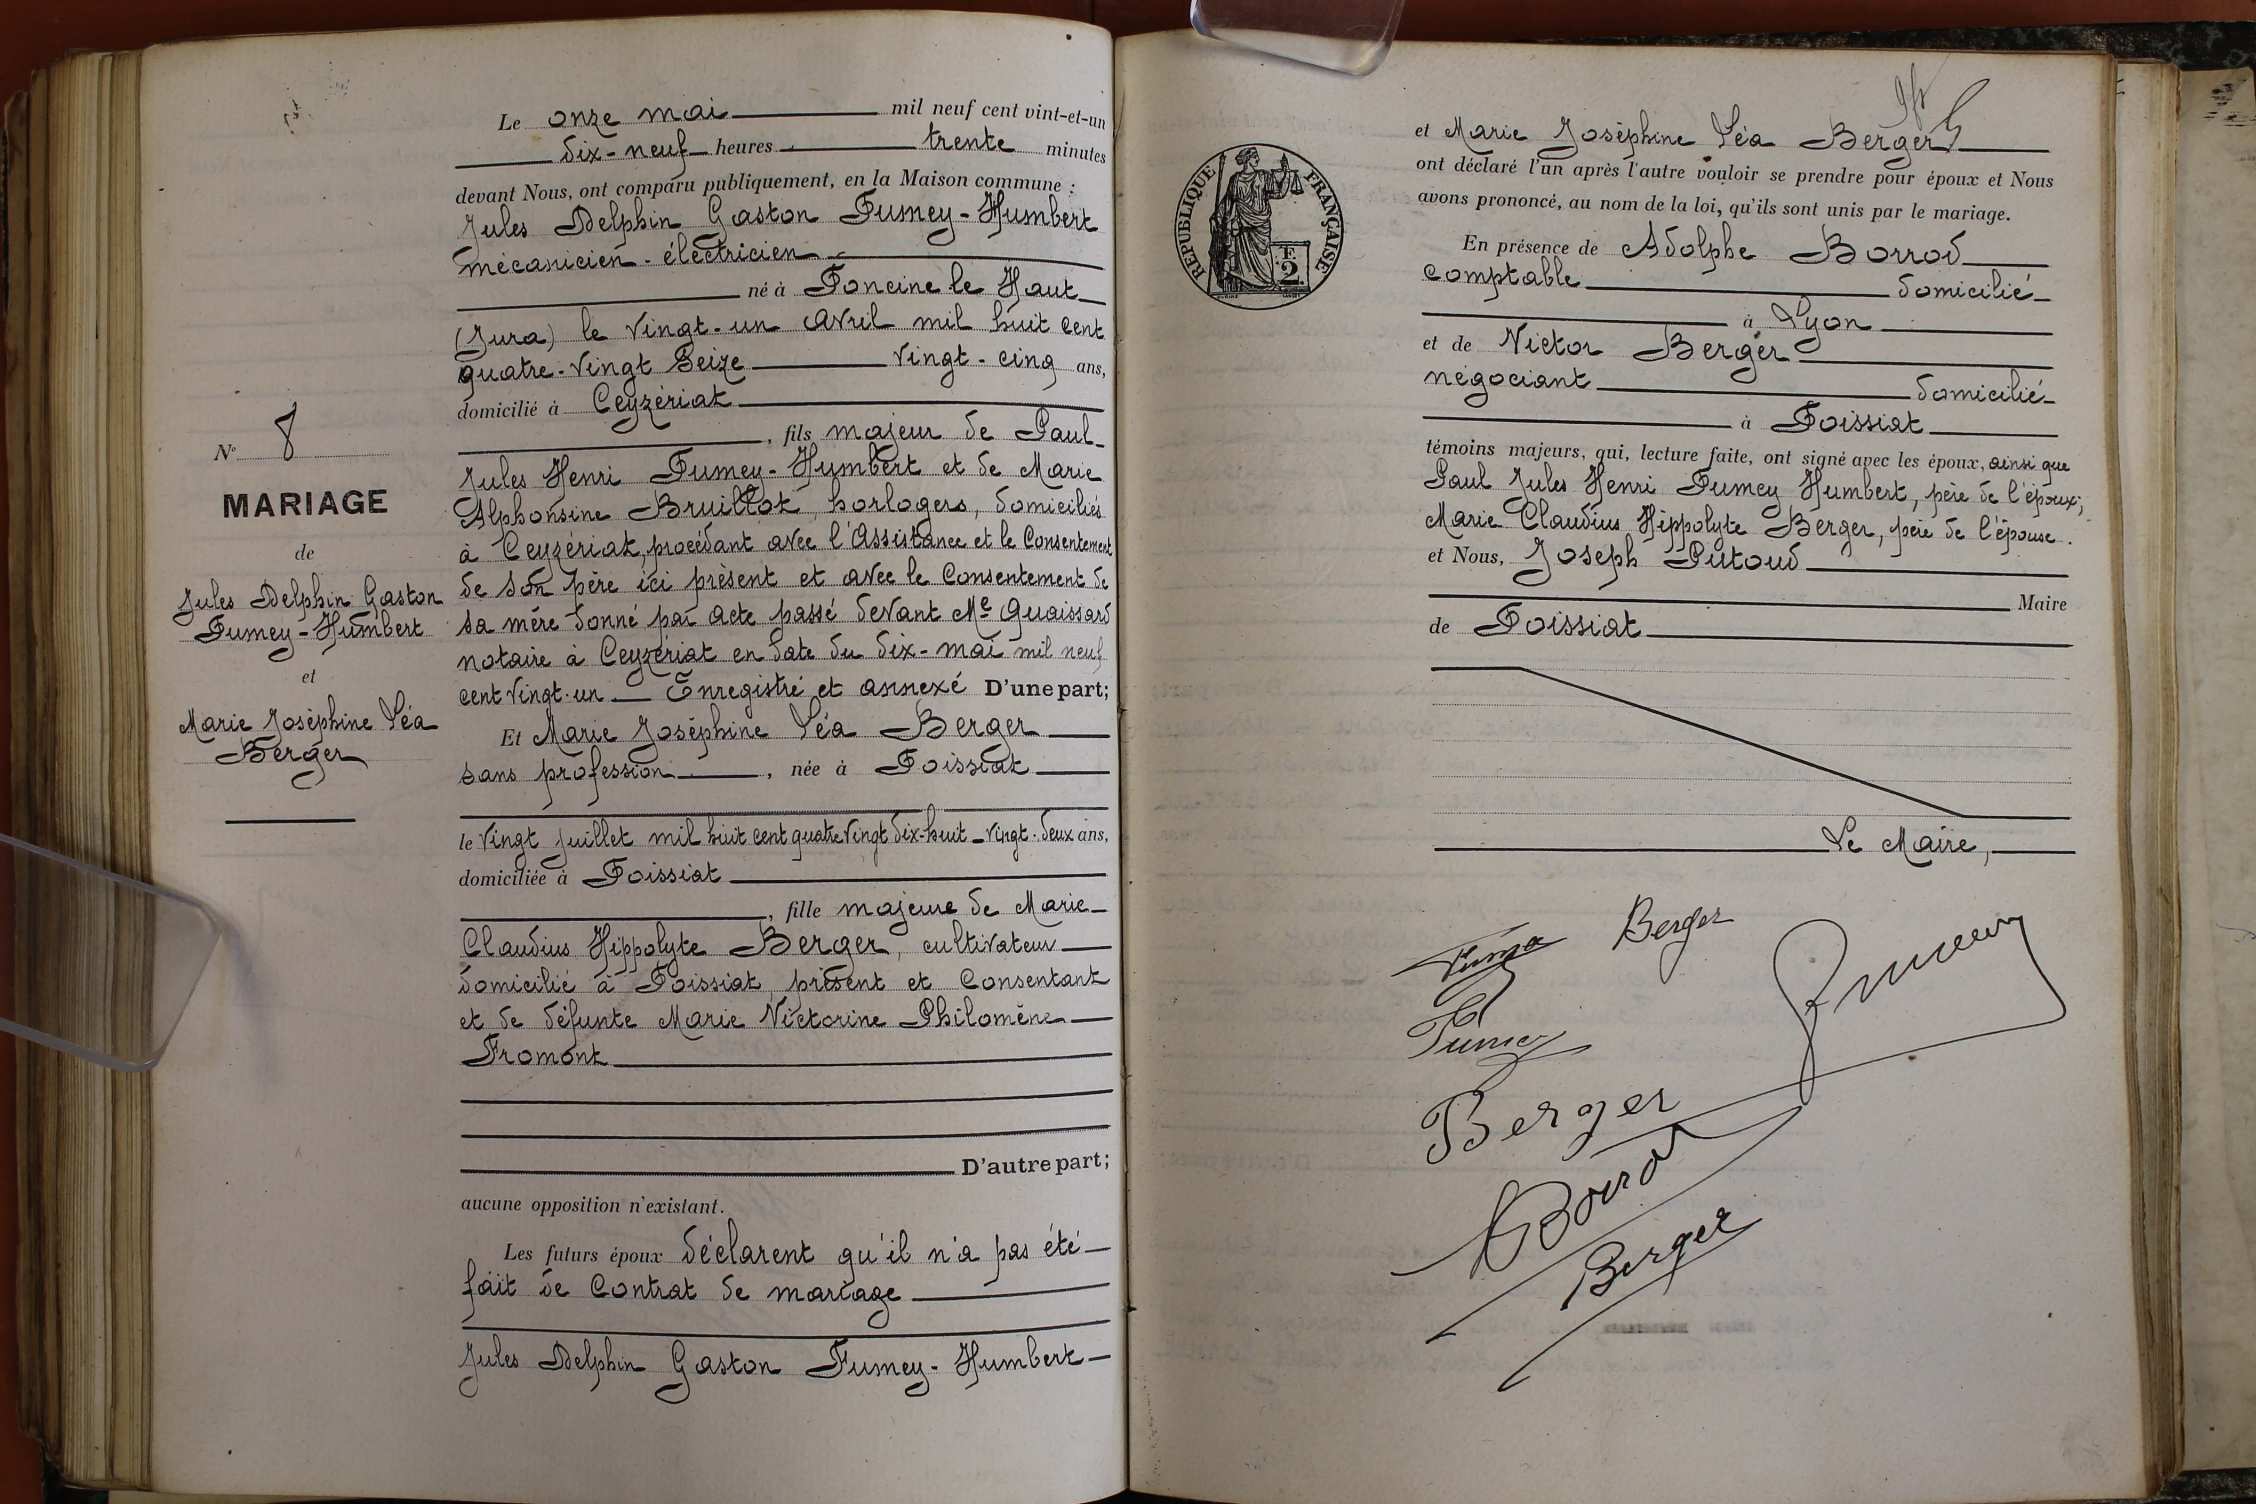 N° 8
MARIAGE
de
Jules Delphin Gaston
Fumey-Humbert
et
Marie Joséphine Léa
Berger
Le onze mai mil neuf cent vint-et-un
dix-neuf heures trente minutes
devant Nous, ont comparu publiquement, en la Maison commune :
Jules Delphin Gaston Fumey-Humbert
mécanicien-électricien
né à Foncine le Haut
(Jura) le vingt-un avril mil huit cent
quatre-vingt seize vingt-cinq ans,
domicilié à Ceyzériat
, fils majeur de Paul
Jules Henri Fumey-Humbert et de Marie
Alphonsine Bruillot, horlogers, domiciliés
à Ceyzériat, procédant avec l'assistance et le consentement
de son père ici présent et avec le consentement de
sa mère donné par acte passé devant Me Quaissard
notaire à Ceyzériat en date du dix-mai mil neuf
cent vingt-un Enregistré et annexé D'une part;
Et Marie Joséphine Léa Berger
sans profession, née à Foissiat
le vingt juillet mil huit cent quatre vingt dix-huit - vingt-deux ans,
domiciliée à Foissiat
, fille majeure de Marie
Claudius Hippolyte Berger, cultivateur
domicilié à Foissiat, présent et consentant
et de défunte Marie Victorine Philomène
Fromont
D'autre part;
aucune opposition n'existant.
Les futurs époux déclarent qu'il n'a pas été
fait de contrat de mariage
Jules Delphin Gaston Fumey-Humbert
RÉPUBLIQUE FRANÇAISE
F.
2
et Marie Joséphine Léa Berger
ont déclaré l'un après l'autre vouloir se prendre pour époux et Nous
avons prononcé, au nom de la loi, qu'ils sont unis par le mariage.
En présence de Adolphe Borrod
comptable domicilié
à Lyon
et de Victor Berger
négociant domicilié
à Foissiat
témoins majeurs, qui, lecture faite, ont signé avec les époux, ainsi que
Paul Jules Henri Fumey Humbert, père de l'époux;
Marie Claudius Hippolyte Berger, père de l'épouse.
et Nous, Joseph Putoud
Maire
de Foissiat
Le Maire,
Berger
Fumey
Fumey
Berger
Borrod
Berger